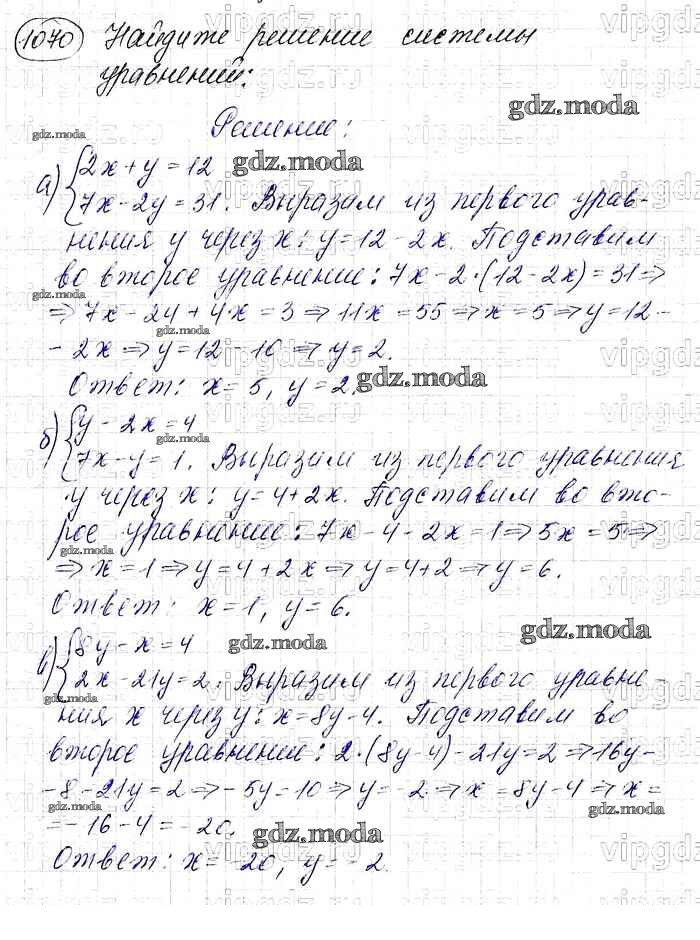 1070 Найдите решение системы
уравнений:
Решение:
а) {2x + y = 12
7x - 2y = 31. Выразим из первого урав-
нения y через x: y = 12 - 2x. Подставим
во второе уравнение: 7x - 2·(12 - 2x) = 31 ⇒
⇒ 7x - 24 + 4x = 3 ⇒ 11x = 55 ⇒ x = 5 ⇒ y = 12 -
- 2x ⇒ y = 12 - 10 ⇒ y = 2.
Ответ: x = 5, y = 2.
б) {y - 2x = 4
7x - y = 1. Выразим из первого уравнения
y через x: y = 4 + 2x. Подставим во вто-
рое уравнение: 7x - 4 - 2x = 1 ⇒ 5x = 5 ⇒
⇒ x = 1 ⇒ y = 4 + 2x ⇒ y = 4 + 2 ⇒ y = 6.
Ответ: x = 1, y = 6.
в) {8y - x = 4
2x - 21y = 2. Выразим из первого уравне-
ния x через y: x = 8y - 4. Подставим во
второе уравнение: 2·(8y - 4) - 21y = 2 ⇒ 16y -
- 8 - 21y = 2 ⇒ - 5y = 10 ⇒ y = -2 ⇒ x = 8y - 4 ⇒ x =
= -16 - 4 = -20.
Ответ: x = -20, y = -2.